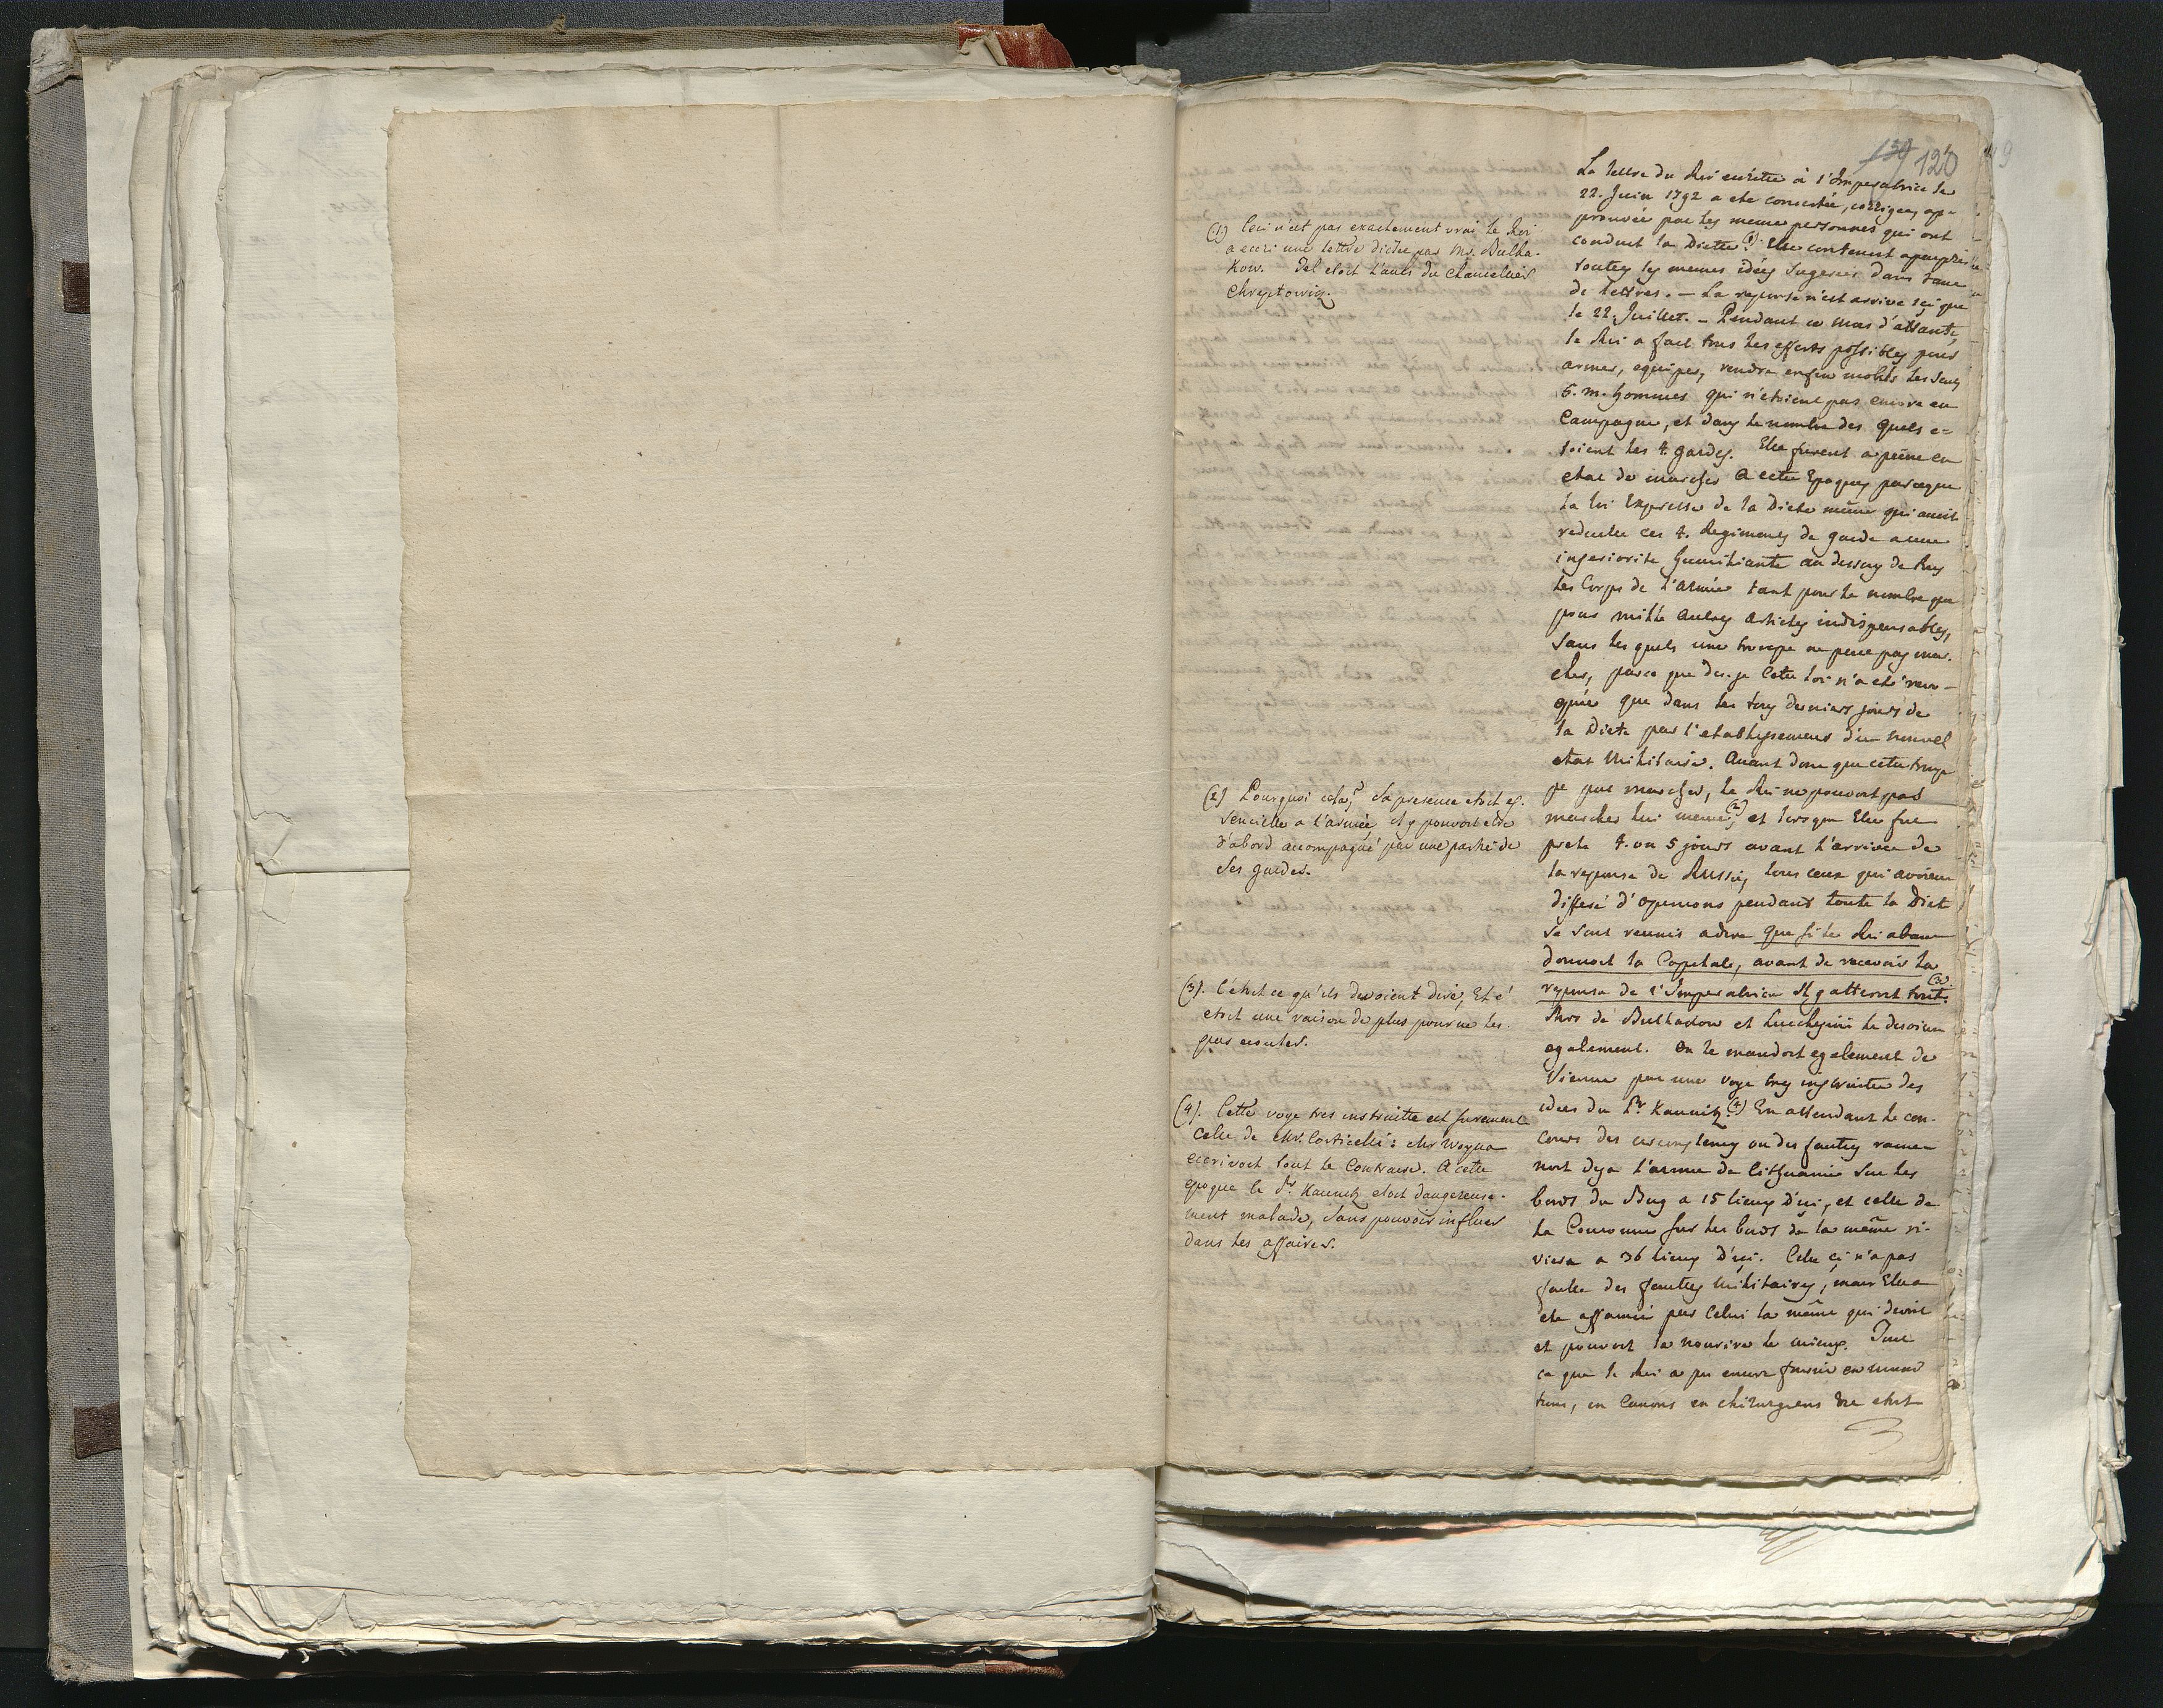 139 120
La lettre du Roi ecritte à l'Imperatrice le
22. Juin 1792 a ete concertée, corrigée, ap-
prouvée par les meme personnes qui ont
conduit la Diette. (1) Elle contenoit apeuprès
toutes les memes idées sugerées dans tant
de lettres. — La reponse n'est arrivé ici que
le 22. Juillet. — Pendant ce mois d'attante,
le Roi a fait tous les efforts possibles pour
armer, equiper, rendre enfin mobils les seuls
6. m. hommes qui n'etoient pas encore en
Campagne, et dans le nombre des quels e=
toient les 4. gardes. Elle furent a peine en
etat de marcher a cette Epoque, parceque
la loi Expresse de la Diete même qui avoit
reduite ces 4. Regiments de garde a une
inferiorite humiliante au dessous de tous
les Corps de l'Armée tant pour le nombre que
pour mille autres articles indispensables,
sans les quels une troupe ne peut pas mar-
cher, parce que dis-je cette loi n'a eté revo-
quée que dans les tous derniers jours de
la Diete par l'etablissement d'un nouvel
etat Militaire. Avant donc que cette troupe
pu marcher, le Roi ne pouvoit pas
marcher lui meme, (2) et lorsque Elle fut
prete 4. ou 5 jours avant l'arrivée de
la reponse de Russie, tous ceux qui avoient
differé d'opinions pendant toute la Diete
se sont reunis a dire que si le Roi aban
donnoit la Capitale, avant de recevoir la
reponse de l'Imperatrice Il gatteroit tout. (3)
Mrs de Bulhakow et Lucchesini le disoient
egalement. On le mandoit egalement de
Vienne par une voye tres instruite des
idees du Pr. Kaunitz. (4) En attendant le con-
cours des circonstences ou des fautes rame-
noit deja l'armée de Lithuanie sur les
bords du Bug a 15 lieues d'ici, et celle de
la Couronne sur les bords de la même ri-
viere a 36 lieues d'ici. Celle ci n'a pas
faite des fautes Militaires, mais Elle a
ete affamée par Celui la même qui devoit
et pouvoit la nourire le mieux. Tout
ce que le Roi a pu encore fournir en muni
tions, en Canons en chirurgiens etoit
(1) Ceci n'est pas exactement vrai le Roi
a ecri une lettre dictée par Mr. Bulha-
kow. Tel etoit l'avis du Chancelier
Chreptowicz.
(2) Pourquoi cela? Sa presence etoit es-
sencielle a l'armée il y pouvoit etre
d'abord accompagné par une partie de
ses gardes.
(3). C'etoit ce qu'ils devoient dire, Et c'
etoit une raison de plus pour ne les
pas ecouter.
(4). Cette voye tres instruitte est surement
celle de Mr. Corticelli: Mr Woyna
ecrivoit tout le Contraire. A cette
epoque le Pr. Kaunitz etoit dangereuse-
ment malade, sans pouvoir influer
dans les affaires.